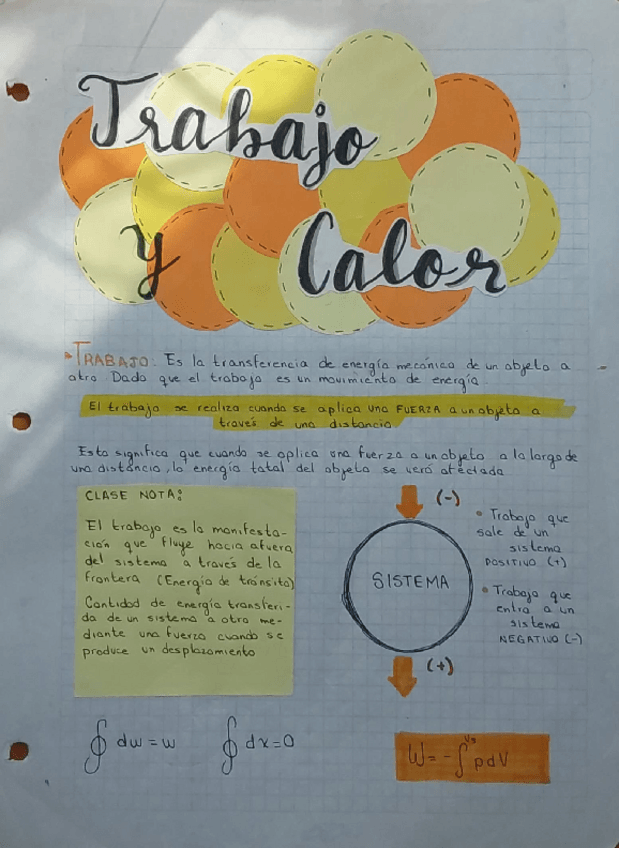 Trabajo
y Calor
TRABAJO: Es la transferencia de energía mecánica de un objeto a
otro. Dado que el trabajo es un movimiento de energía.
El trabajo se realiza cuando se aplica una FUERZA a un objeto a
través de una distancia
Esto significa que cuando se aplica una fuerza a un objeto a lo largo de
una distancia, la energía total del objeto se verá afectada
CLASE NOTA:
El trabajo es la manifesta-
ción que fluye hacia afuera
del sistema a través de la
frontera (Energía de tránsito)
Cantidad de energía transferi-
da de un sistema a otro me-
diante una fuerza cuando se
produce un desplazamiento
(-)
SISTEMA
(+)
• Trabajo que
sale de un
sistema
POSITIVO (+)
• Trabajo que
entra a un
sistema
NEGATIVO (-)
∮ dw = w
∮ dx = 0
W = -∫ p dV